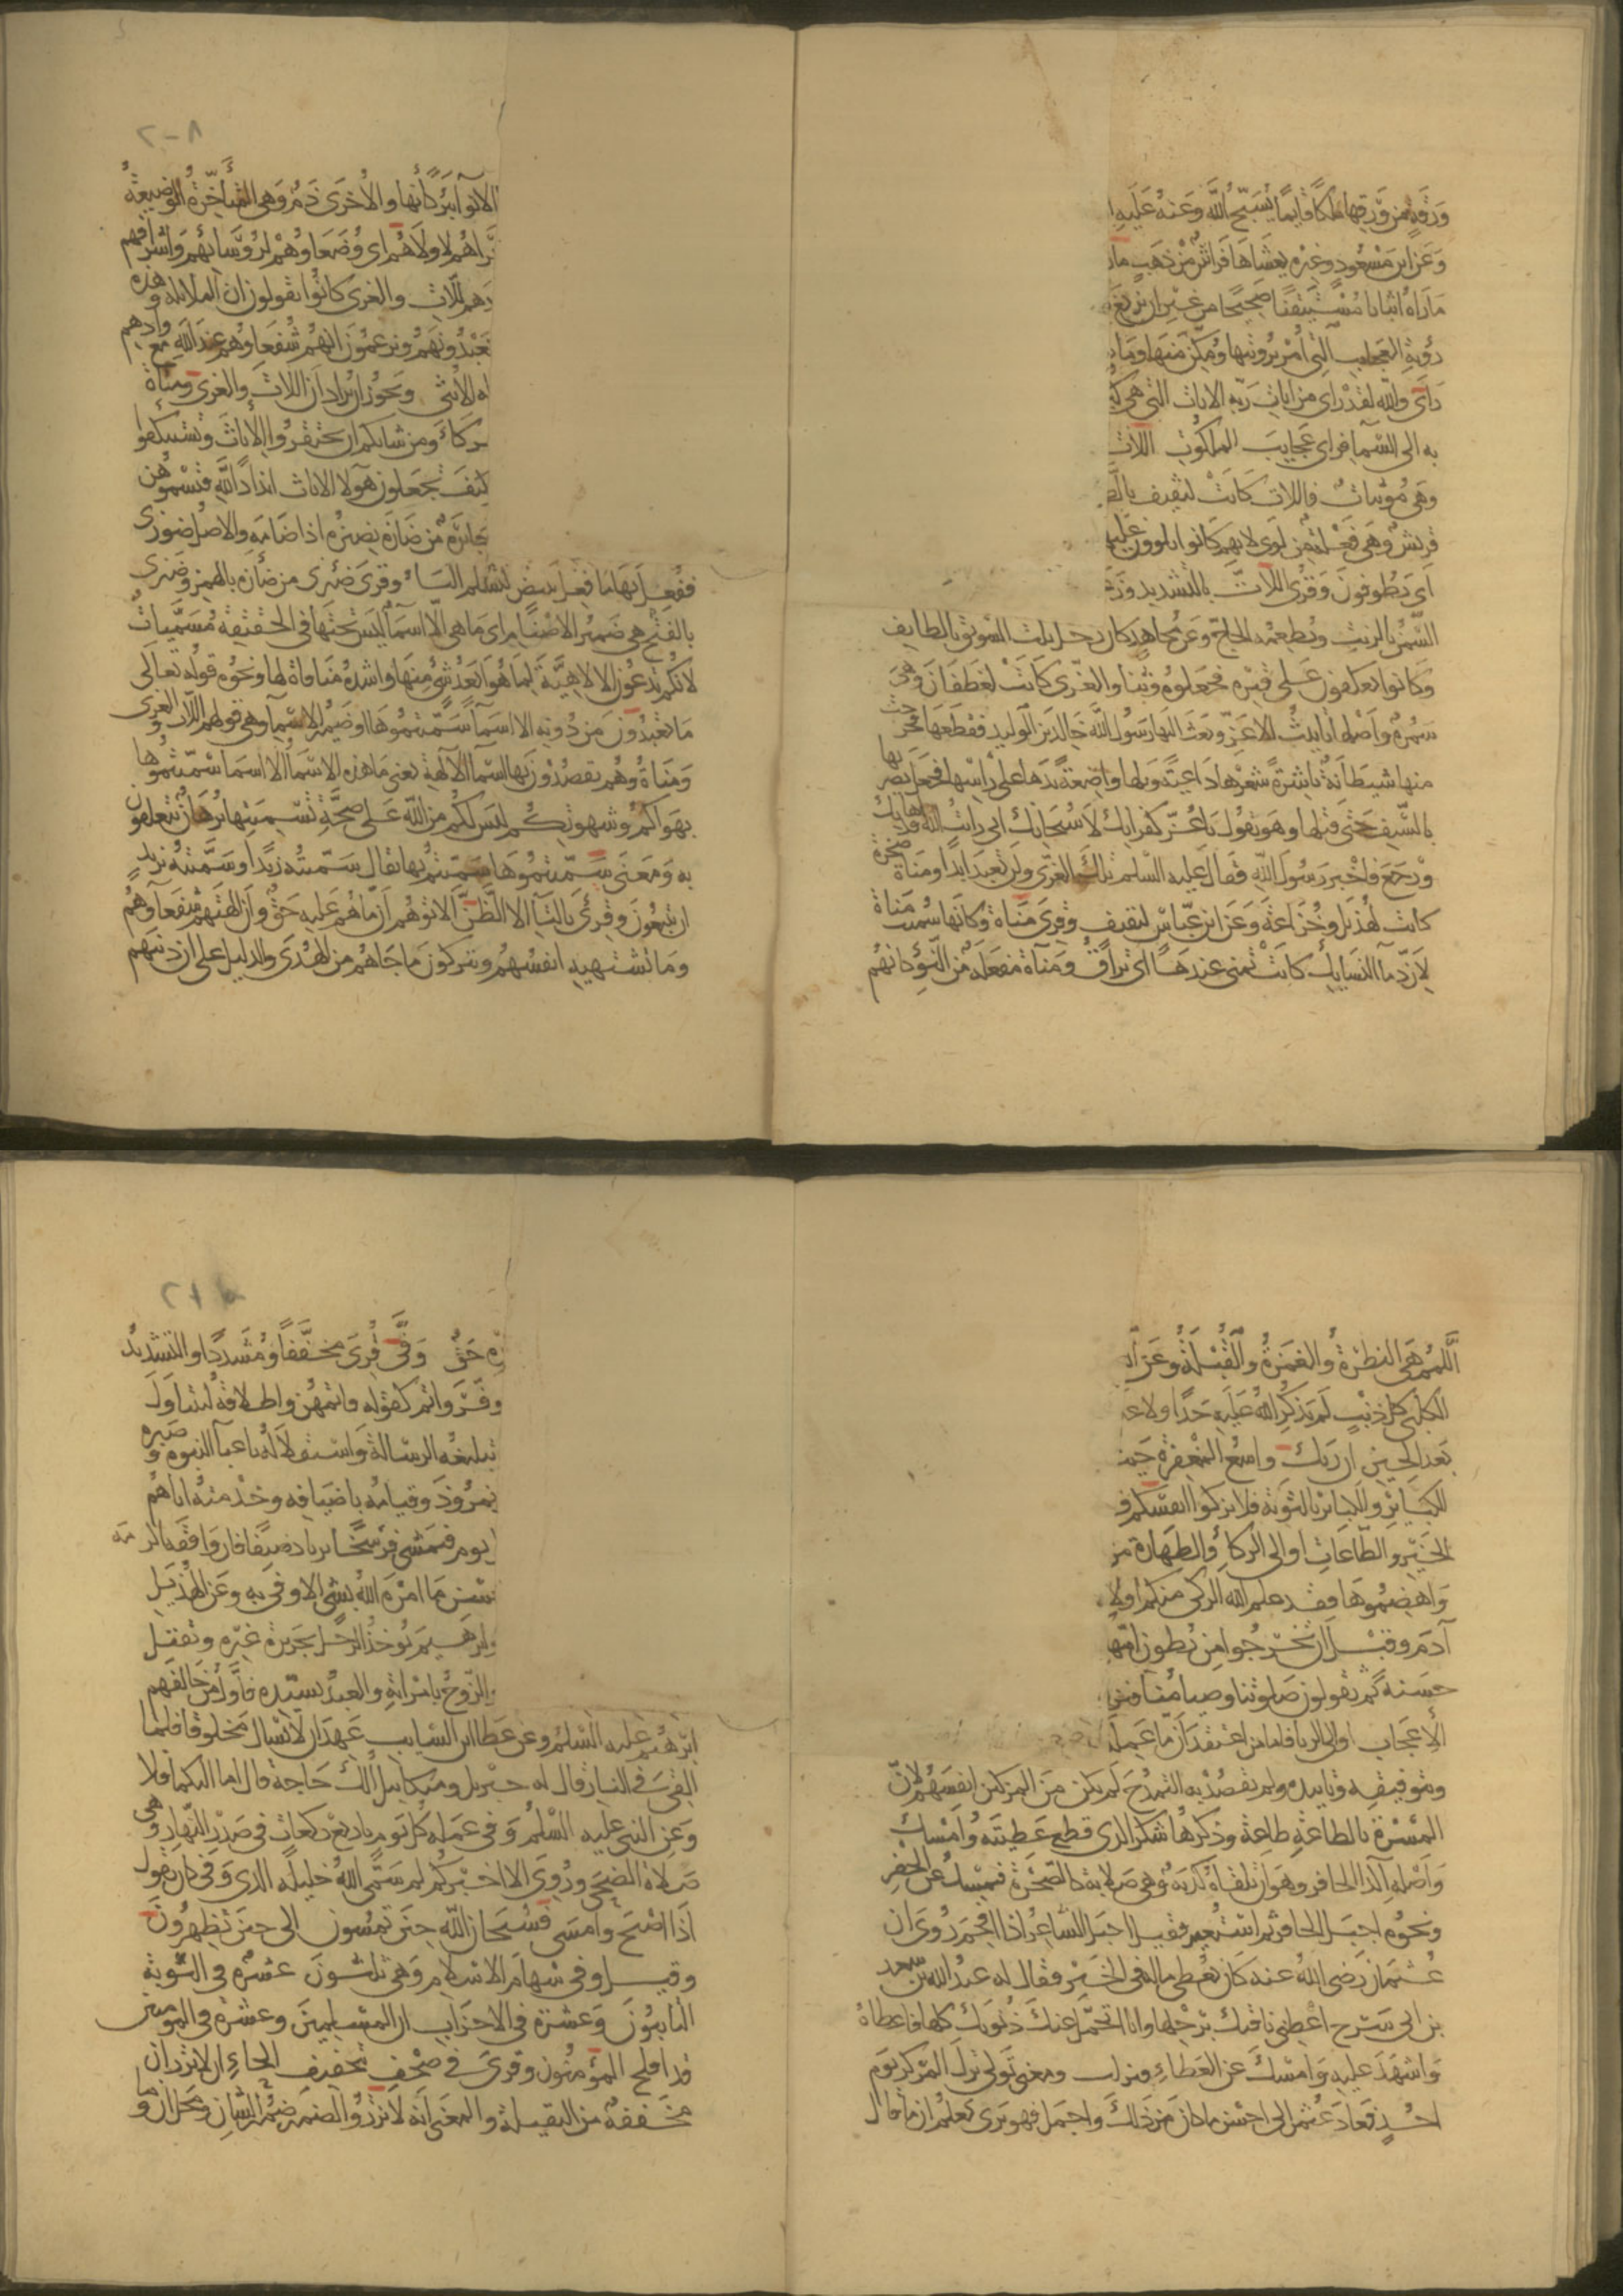 ورقة من ورقها ملكا قايما يسبح الله وعنه عليه ا
وعن ابن مسعود وغيره يغشاها فراش من ذهب ما
ما رآه اثباتا مستيقنا صحيحا من غير ان يزيغ
رؤية العجايب التي أمر برؤيتها ومكن منها وما
رأى والله لقد رأى من ايات ربه الايات التي هي
به الى السمآ فرأى عجايب الملكوت اللات
وهي مؤنثات فاللات كانت لثقيف بالط
قريش وهي فعلة من لوى لانهم كانوا يلوون عليها
اي يطوفون وقرئ اللات بالتشديد وز
السمن بالزيت ويطعمه الحاج وعن مجاهد كان رجل يلت السويق بالطايف
وكانوا يعكفون على قبره فجعلوه وثنا والعزى كانت لغطفان وهي
سمرة واصلها تانيث الاعز وبعث اليها رسول الله خالد بن الوليد فقطعها فخرجت
منها شيطانة ناشرة شعرها داعية ويلها واضعة يدها على راسها فجعل يضربها
بالسيف حتى قتلها وهو يقول يا عز كفرانك لا سبحانك اني رايت الله قد اهانك
ورجع فاخبر رسول الله فقال عليه السلم تلك العزى ولن تعبد ابدا ومناة صخرة
كانت لهذيل وخزاعة وعن ابن عباس لثقيف وقرئ مناة وكانها سميت مناة
لان دمآ النسايك كانت تمنى عندها اي تراق ومنآة مفعلة من النوء كانهم
الانوآ تبركا بها والاخرى ذم وهي المتأخرة الوضيعة
تراهم لاولاهم اى وضعاوهم لرؤسائهم واشرافهم
دهم للات والعزى كانوا يقولون ان الملائكة وهذه
تعبدونهم ويزعمون انهم شفعاوهم عند الله مع وادهم
له الانثى ويجوز ان يراد ان اللات والعزى ومناة
شركاء ومن شانكم ان تحتقروا الاناث وتستنكفوا
كيف تجعلون هولا الاناث اندادا لله وتسموهن
جائرة من ضازه يضيزه اذا ضامه والاصل ضوزى
ففعل بها ما فعل ببيض لتسلم الياء وقرئ ضئزى من ضأزه بالهمز وضيزى
بالفتح هي ضمير الاصنام اى ما هي الا اسمآ ليس تحتها في الحقيقة مسميات
لانكم تدعون الالاهية لما هو ابعد شئ منها واشده منافاة لها ونحوه قوله تعالى
ما تعبدون من دونه الا اسمآ سميتموها او ضمير الاسمآ وهي قولهم اللات والعزى
ومناة وهم يقصدون بها اسمآ الآلهة يعني ما هذه الاسمآ الا اسمآ سميتموها
بهواكم وشهوتكم ليس لكم من الله على صحة تسميتها برهان تتعلقون
به ومعنى سميتموها سميتم بها يقال سميته زيدا وسميته بزيد
ان يتبعون وقرئ بالتآ الا الظن الا توهم ان ما هم عليه حق وان الهتهم شفعآوهم
وما تشتهيه انفسهم ويتركون ما جاهم من الهدى والدليل على ان دينهم
اللمم هي النظرة والغمزة والقبلة وعن
الكلبي كل ذنب لم يذكر الله عليه حدا ولا عذ
بعد الحين ان ربك واسع المغفرة حيث
الكبائر والكبائر بالتوبة فلا تزكوا انفسكم ف
الخير والطاعات او الى الزكاء والطهارة من
واهضموها فقد علم الله الزكي منكم اولا
آدم وقبل ان تخرجوا من بطون امها
حسنة ثم تقولون صلوتنا وصيامنا
الاعجاب او الى الريا فاما من اعتقد ان ما عمله
وتوفيقه وتاييده ولم تقصد به التمدح لم يكن من المزكين انفسهم لان
المسرة بالطاعة طاعة وذكرها شكر اكدى قطع عطيته وامسك
واصله اكدا الحافر وهو ان تلقاه كدية وهي صلابة كالصخرة فيمسك عن الحفر
ونحوه اجبل الحافر ثم استعير فقيل اجبل الشاعر اذا افحم روى ان
عثمن رضي الله عنه كان يعطي ماله في الخير فقال له عبد الله بن سعد
بن ابي سرح اعطني ناقتك برحلها وانا اتحمل عنك ذنوبك كلها فاعطاه
واشهد عليه وامسك عن العطاء فنزلت ومعنى تولى ترك المركز يوم
احد فعاد عثمن الى احسن ما كان من ذلك واجمل فهو يرى يعلم ان ما قال
ره حق وفى قرئ مخففا ومشددا والتشديد
وفر واتم كقوله فاتمهن واطلاقه ليتناول
تبليغه الرسالة واستقلاله باعبآ النبوه وصبره
نمروذ وقيامه باضيافه وخدمته اياهم
يوم فيمشي فرسخا يرتاد ضيفا فان وافقه اكرمه
سن ما امره الله بشئ الا وفى به وعن الهذيل
ابرهيم يوخذ الرجل بجريرة غيره ويقتل
والزوج بامراته والعبد بسيده فاول من خالفهم
ابرهيم عليه السلم وعن عطا ابن السايب عهد ان لا يسال مخلوقا فلما
القي في النار قال له جبريل وميكائيل الك حاجة قال اما اليكما فلا
وعن النبي عليه السلم وفى عمله كل يوم باربع ركعات في صدر النهار وهي
صلاة الضحى وروى الا اخبركم لم سمى الله خليله الذى وفى كان يقول
اذا اصبح وامسى فسبحان الله حين تمسون الى حين تظهرون
وقيل وفى سهام الاسلام وهي ثلثون عشره في التوبة
التايبون وعشرة في الاحزاب ان المسلمين وعشره في المومنين
قد افلح المؤمنون وقرئ في صحف بتخفيف الحاء ان لا تزر ان
مخففة من الثقيلة والمعنى انه لا تزر والضمير ضمير الشان ومحل ان وما